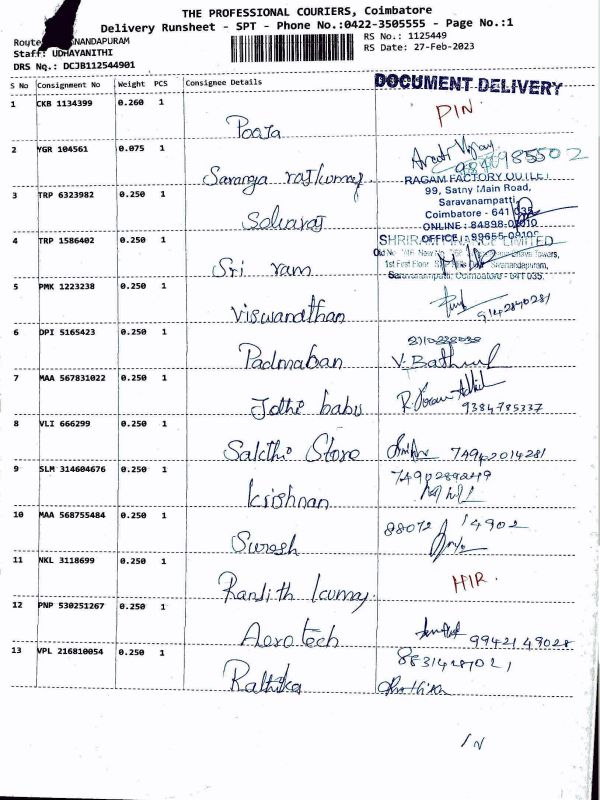 THE PROFESSIONAL COURIERS, Coimbatore
Delivery Runsheet - SPT - Phone No.:0422-3505555 - Page No.:1
Route ANANDAPURAM
Staff: UDHAYANITHI
DRS No.: DCJB112544901
RS No.: 1125449
RS Date: 27-Feb-2023
S No Consignment No Weight PCS Consignee Details
DOCUMENT DELIVERY
1 CKB 1134399 0.260 1 Pooja PIN
2 YGR 104561 0.075 1 Saranga rajkumar
RAGAM FACTORY OUTLET
99, Satny Main Road,
Saravanampatti,
Coimbatore - 641 035
ONLINE : 84898-01010
OFFICE : 99655-09105
3 TRP 6323982 0.250 1
4 TRP 1586402 0.250 1 Sri ram
5 PMK 1223238 0.250 1 Viswanathan 9142840281
6 DPI 5165423 0.250 1 Padmaban
7 MAA 567831022 0.250 1 Jothi babu 9384785337
8 VLI 666299 0.250 1 Sakthi Store 74942014281
9 SLM 314604676 0.250 1 Krishnan 7490289249
10 MAA 568755484 0.250 1 Suresh 88072 14902
11 NKL 3118699 0.250 1 Ranjith kumar HIR
12 PNP 530251267 0.250 1 Aerotech 9942149028
13 VPL 216810054 0.250 1 Rathika 8831487021